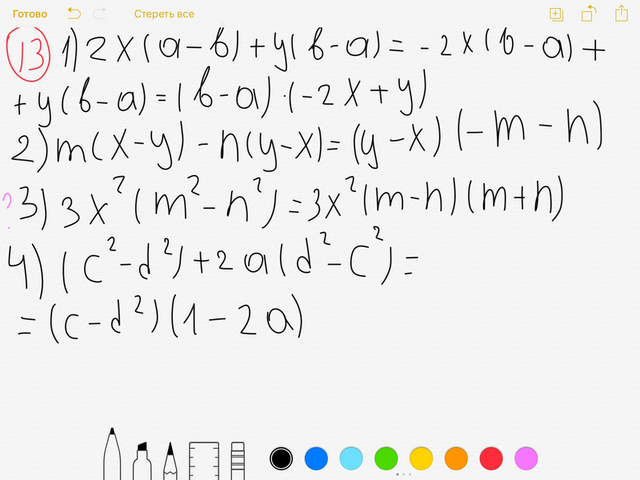 Готово Стереть все
13 1) 2x(a-b)+y(b-a)=-2x(b-a)+
+y(b-a)=(b-a)·(-2x+y)
2) m(x-y)-n(y-x)=(y-x)(-m-n)
? 3) 3x²(m²-n²)=3x²(m-n)(m+n)
4) (c²-d²)+2a(d²-c²)=
=(c-d²)(1-2a)